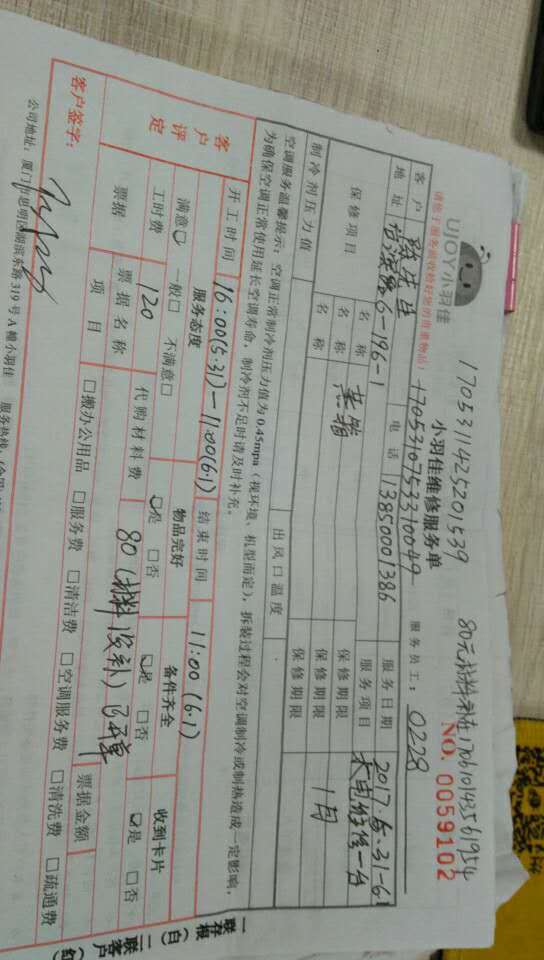 1705311425201539
80元材料未在170610143561954
UJOY小羽佳
小羽佳维修服务单
NO. 0059102
请您于服务前收拾好您的贵重物品!
+1705310753310049
服务员工: 0228
客户
电话 13850001386
服务日期 2017.5.31-6.1
地址 6-196-1
服务项目 水电维修一台
保修项目
名称
保修期限 1月
名称
保修期限
名称
保修期限
制冷剂压力值
出风口温度
空调服务温馨提示:空调正常制冷剂压力值为0.45mpa(视环境、机型而定),拆装过程会对空调制冷或制热造成一定影响,
为确保空调正常使用延长空调寿命,制冷剂不足时请及时补充。
开工时间 16:00(5.31)-11:00(6.1)
结束时间 11:00(6.1)
客户评定
服务态度
物品完好
备件齐全
收到卡片
满意□ 一般□ 不满意□
□是 □否
□是 □否
□是 □否
工时费 120
代购材料费 80(材料没补)已开单
票据
票据名称
票据金额
项目
□搬办公用品 □服务费 □清洁费 □空调服务费 □清洗费 □疏通费
客户签字:
公司地址:厦门市思明区湖滨东路319号A幢小羽佳
服务热线:
一联存根(白)
二联客户(红